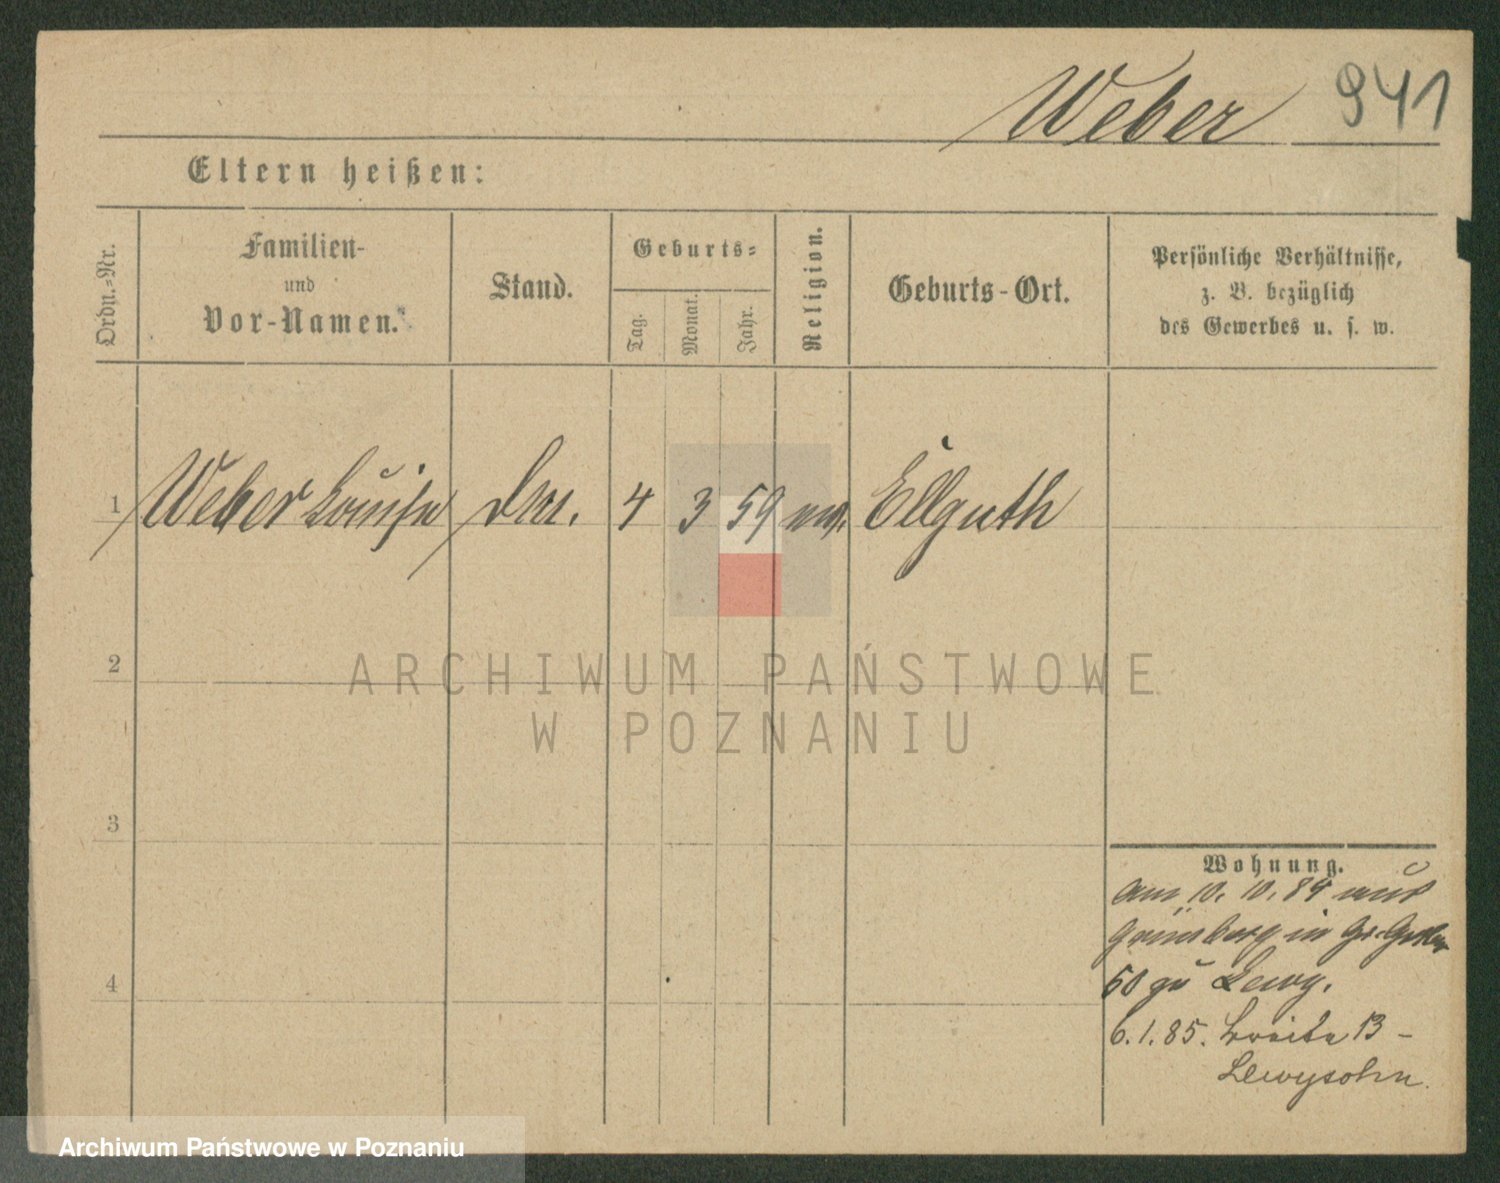 Weber 941
Eltern heißen:
Ordn.-Nr.
Familien-
und
Vor-Namen.
Stand.
Geburts-
Tag.
Monat.
Jahr.
Religion.
Geburts-Ort.
Persönliche Verhältnisse,
z. B. bezüglich
des Gewerbes u. s. w.
1 Weber Louise 4 3 59 Ellguth
2
ARCHIWUM PAŃSTWOWE
W POZNANIU
3
Wohnung.
am 10. 10. 84 aus
Grünberg in Gr. Gerber
4
50 zu Lewy.
6. 1. 85. Breite 13 -
Lewysohn.
Archiwum Państwowe w Poznaniu